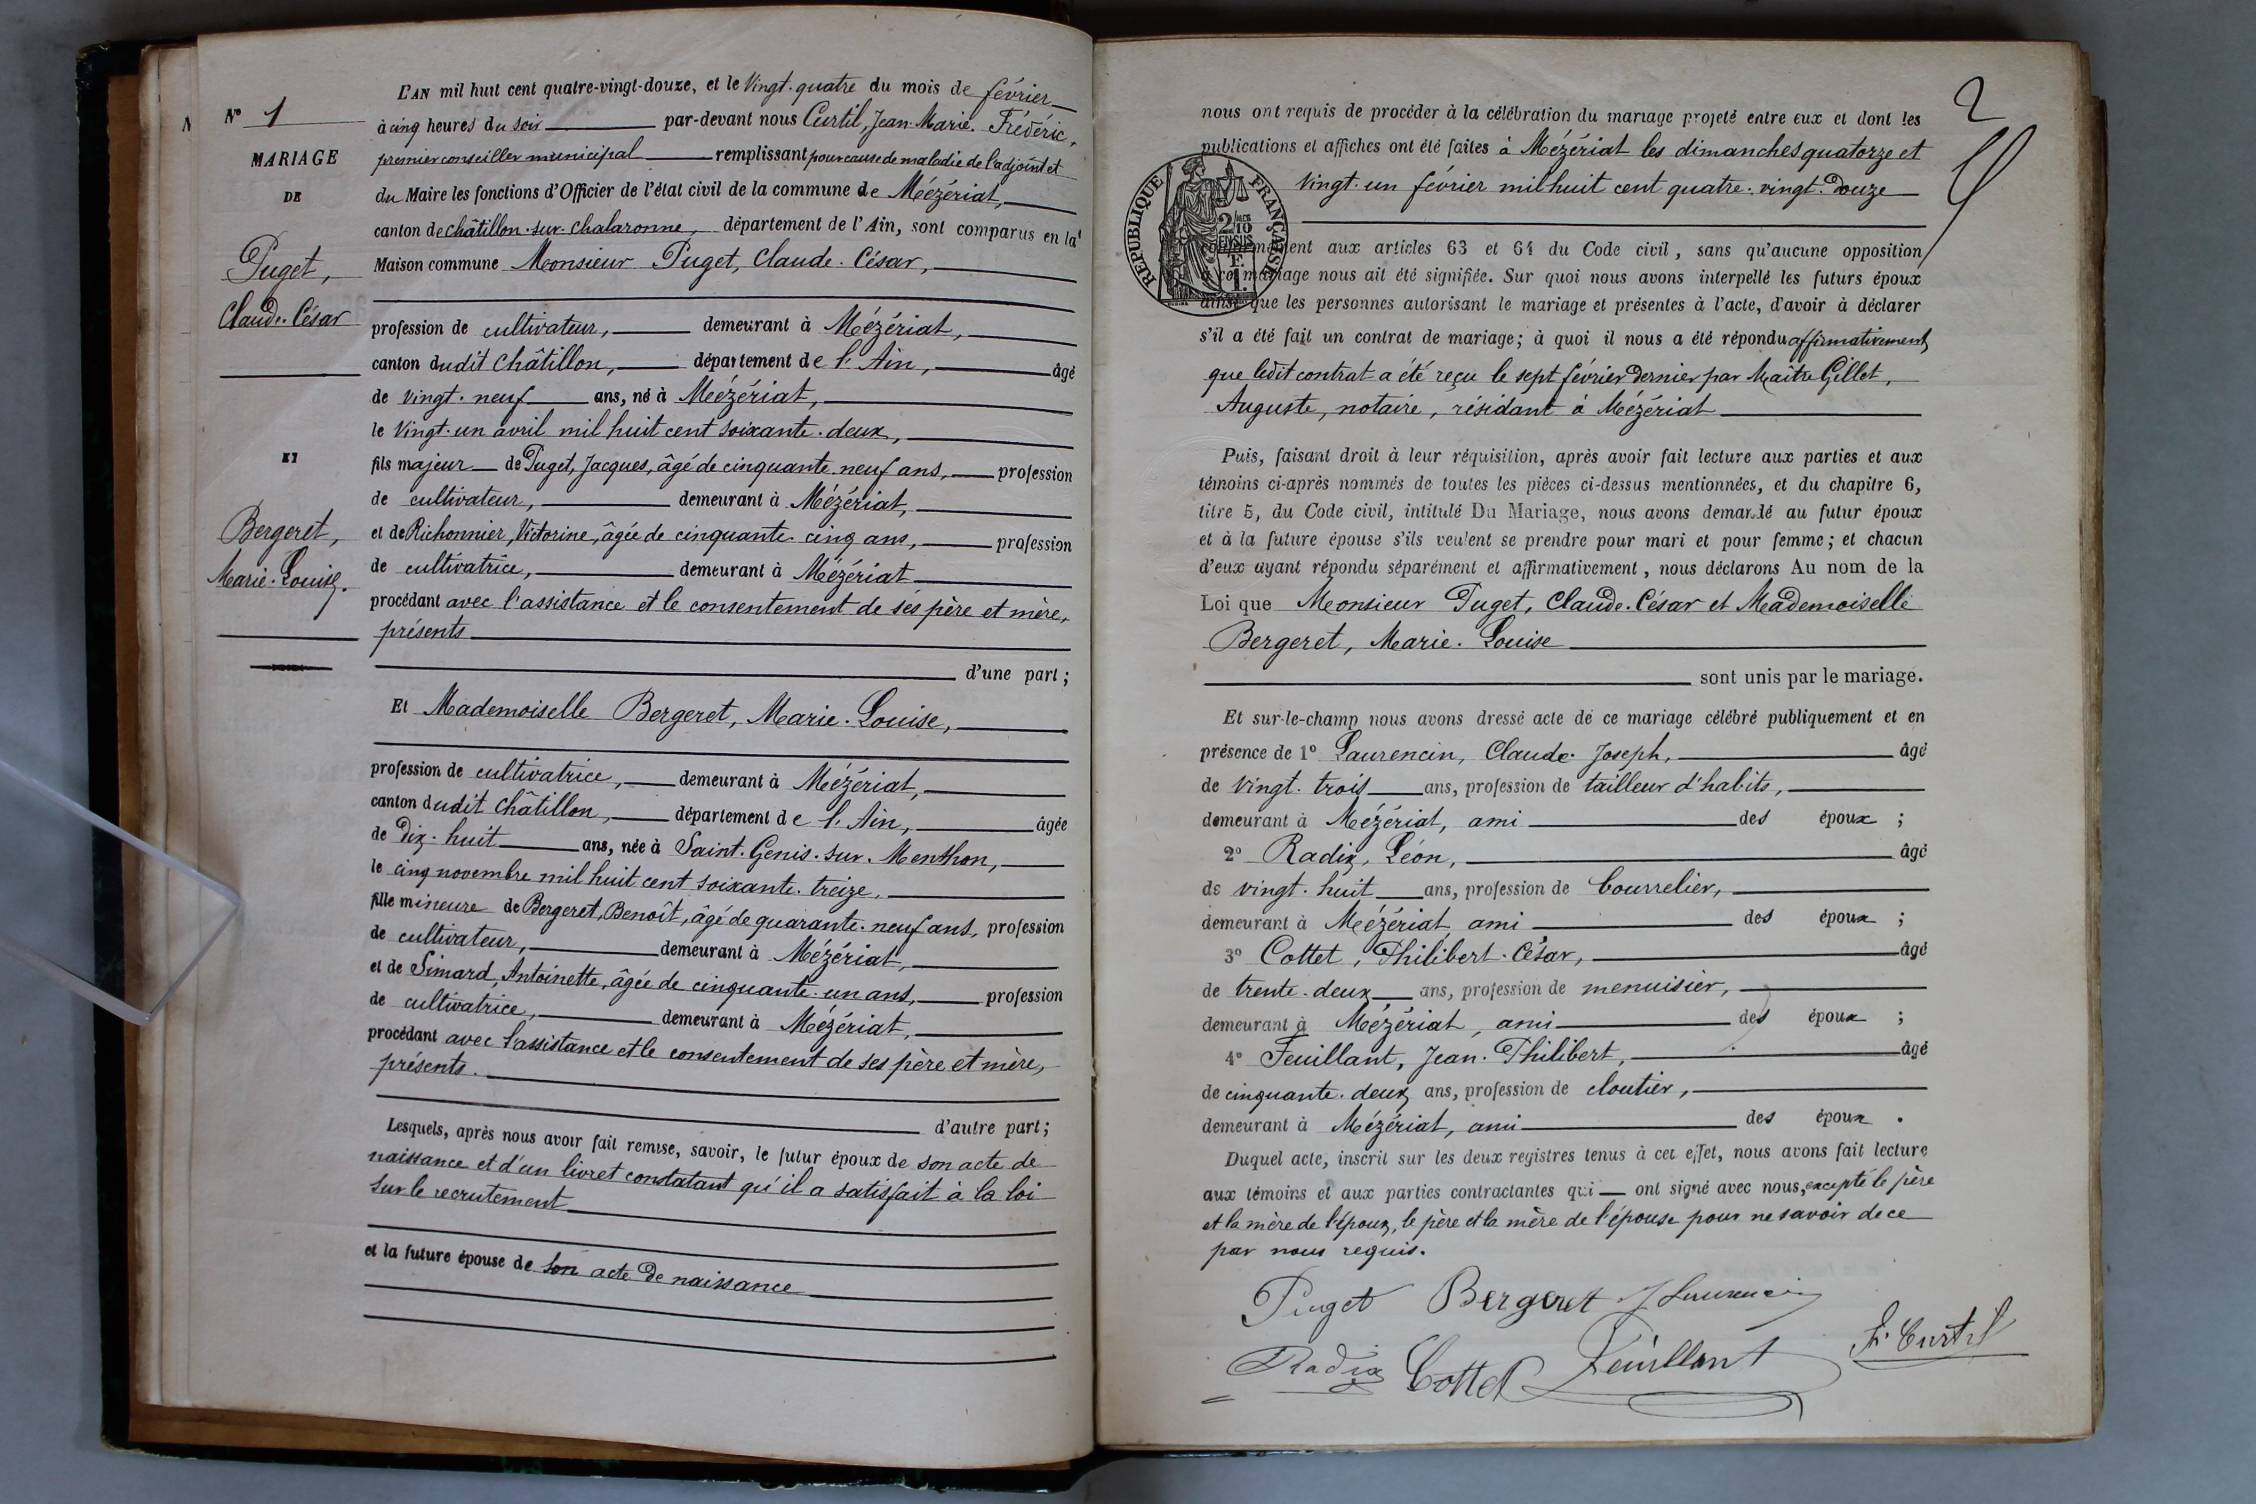 N° 1
MARIAGE
DE
Puget,
Claude-César
ET
Bergeret,
Marie-Louise.
L'AN mil huit cent quatre-vingt-douze, et le Vingt-quatre du mois de février
à cinq heures du soir par-devant nous Curtil, Jean-Marie-Frédéric,
premier conseiller municipal remplissant pour cause de maladie de l'adjoint et
du Maire les fonctions d'Officier de l'état civil de la commune de Mézériat,
canton de Châtillon-sur-Chalaronne, département de l'Ain, sont comparus en la
Maison commune Monsieur Puget, Claude-César,
profession de cultivateur, demeurant à Mézériat,
canton dudit Châtillon, département de l'Ain, âgé
de vingt-neuf ans, né à Mézériat,
le Vingt-un avril mil huit cent soixante-deux,
fils majeur de Puget, Jacques, âgé de cinquante-neuf ans, profession
de cultivateur, demeurant à Mézériat,
et de Richonnier, Victorine, âgée de cinquante-cinq ans, profession
de cultivatrice, demeurant à Mézériat
procédant avec l'assistance et le consentement de ses père et mère,
présents
d'une part ;
Et Mademoiselle Bergeret, Marie-Louise,
profession de cultivatrice, demeurant à Mézériat,
canton dudit Châtillon, département de l'Ain, âgée
de Dix-huit ans, née à Saint-Genis-sur-Menthon,
le cinq novembre mil huit cent soixante-treize,
fille mineure de Bergeret, Benoît, âgé de quarante-neuf ans, profession
de cultivateur, demeurant à Mézériat,
et de Simard, Antoinette, âgée de cinquante-un ans, profession
de cultivatrice, demeurant à Mézériat,
procédant avec l'assistance et le consentement de ses père et mère,
présents.
d'autre part ;
Lesquels, après nous avoir fait remise, savoir, le futur époux de son acte de
naissance et d'un livret constatant qu'il a satisfait à la loi
sur le recrutement
et la future épouse de son acte de naissance
2
nous ont requis de procéder à la célébration du mariage projeté entre eux et dont les
publications et affiches ont été faites à Mézériat les dimanches quatorze et
vingt-un février mil huit cent quatre-vingt-douze
RÉPUBLIQUE FRANÇAISE
2/10
EN SUS
F.
1.
conformément aux articles 63 et 64 du Code civil, sans qu'aucune opposition
à ce mariage nous ait été signifiée. Sur quoi nous avons interpellé les futurs époux
ainsi que les personnes autorisant le mariage et présentes à l'acte, d'avoir à déclarer
s'il a été fait un contrat de mariage; à quoi il nous a été répondu affirmativement,
que ledit contrat a été reçu le sept février dernier par Maître Gillet,
Auguste, notaire, résidant à Mézériat
Puis, faisant droit à leur réquisition, après avoir fait lecture aux parties et aux
témoins ci-après nommés de toutes les pièces ci-dessus mentionnées, et du chapitre 6,
titre 5, du Code civil, intitulé Du Mariage, nous avons demandé au futur époux
et à la future épouse s'ils veulent se prendre pour mari et pour femme; et chacun
d'eux ayant répondu séparément et affirmativement, nous déclarons Au nom de la
Loi que Monsieur Puget, Claude-César et Mademoiselle
Bergeret, Marie-Louise
sont unis par le mariage.
Et sur-le-champ nous avons dressé acte de ce mariage célébré publiquement et en
présence de 1° Laurencin, Claude-Joseph, âgé
de vingt-trois ans, profession de tailleur d'habits,
demeurant à Mézériat, ami des époux ;
2° Radix, Léon, âgé
de vingt-huit ans, profession de bourrelier,
demeurant à Mézériat, ami des époux ;
3° Cottet, Philibert-César, âgé
de trente-deux ans, profession de menuisier,
demeurant à Mézériat, ami des époux ;
4° Feuillant, Jean-Philibert, âgé
de cinquante-deux ans, profession de cloutier,
demeurant à Mézériat, ami des époux .
Duquel acte, inscrit sur les deux registres tenus à cet effet, nous avons fait lecture
aux témoins et aux parties contractantes qui ont signé avec nous, excepté le père
et la mère de l'époux, le père et la mère de l'épouse pour ne savoir de ce
par nous requis.
Puget Bergeret J Laurencin
Radix Cottet Feuillant F. Curtil